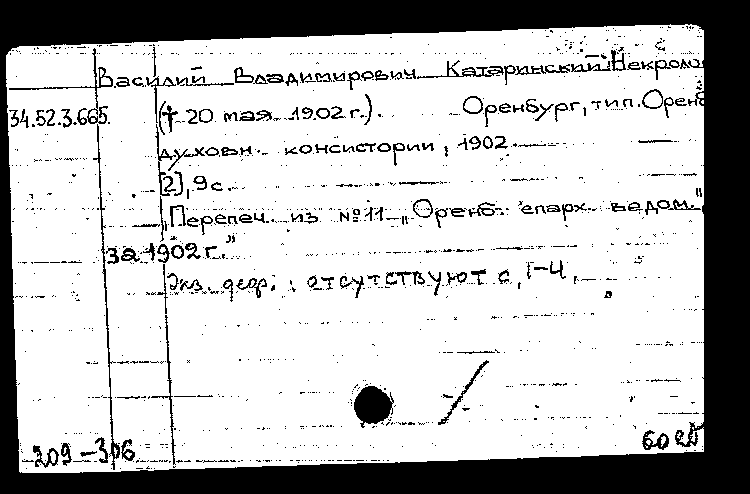 Василий Владимирович Катаринский. Некроло
34.52.3.665. († 20 мая 1902 г.). Оренбург, тип. Оренб
духовн. консистории, 1902
[2], 9 с.
„Перепеч. из №11 „Оренб. епарх. ведом."
за 1902 г."
Экз. деф.: отсутствуют с. 1-4.
209-306